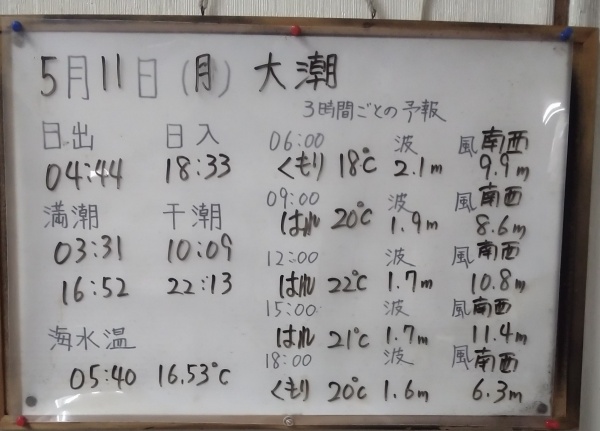 5月11日(月) 大潮
3時間ごとの予報
日出 日入
04:44 18:33
満潮 干潮
03:31 10:09
16:52 22:13
海水温
05:40 16.53℃
06:00 波 風 南西
くもり 18℃ 2.1m 9.9m
09:00 波 風 南西
はれ 20℃ 1.9m 8.6m
12:00 波 風 南西
はれ 22℃ 1.7m 10.8m
15:00 波 風 南西
はれ 21℃ 1.7m 11.4m
18:00 波 風 南西
くもり 20℃ 1.6m 6.3m